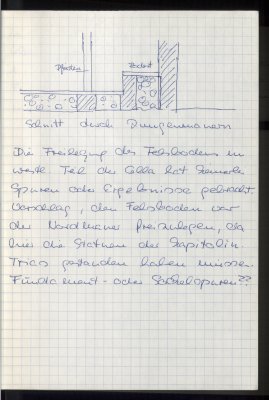 Pfosten
Podest
Schnitt durch Zungenmauern
Die Freilegung des Felsbodens im
westl. Teil der Cella hat keinerlei
Spuren oder Ergebnisse gebracht.
Vorschlag, den Felsboden vor
der Nordmauer freizulegen, da
hier die Statuen der Kapitolin.
Trias gestanden haben müssen.
Fundament- oder Sockelspuren??